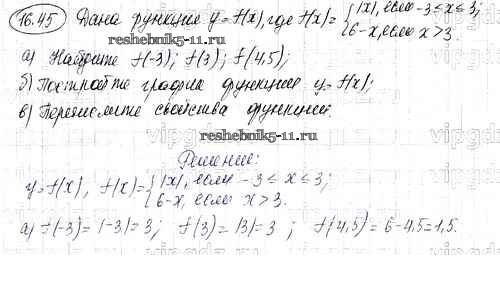 16.45 Дана функция y=f(x), где f(x)= { |x|, если -3≤x≤3;
6-x, если x>3.
reshebnik5-11.ru
а) Найдите f(-3); f(3); f(4,5);
б) Постройте график функции y=f(x);
в) Перечислите свойства функции.
reshebnik5-11.ru
Решение:
y=f(x), f(x)= { |x|, если -3≤x≤3;
6-x, если x>3.
а) f(-3)=|-3|=3; f(3)=|3|=3 ; f(4,5)=6-4,5=1,5.